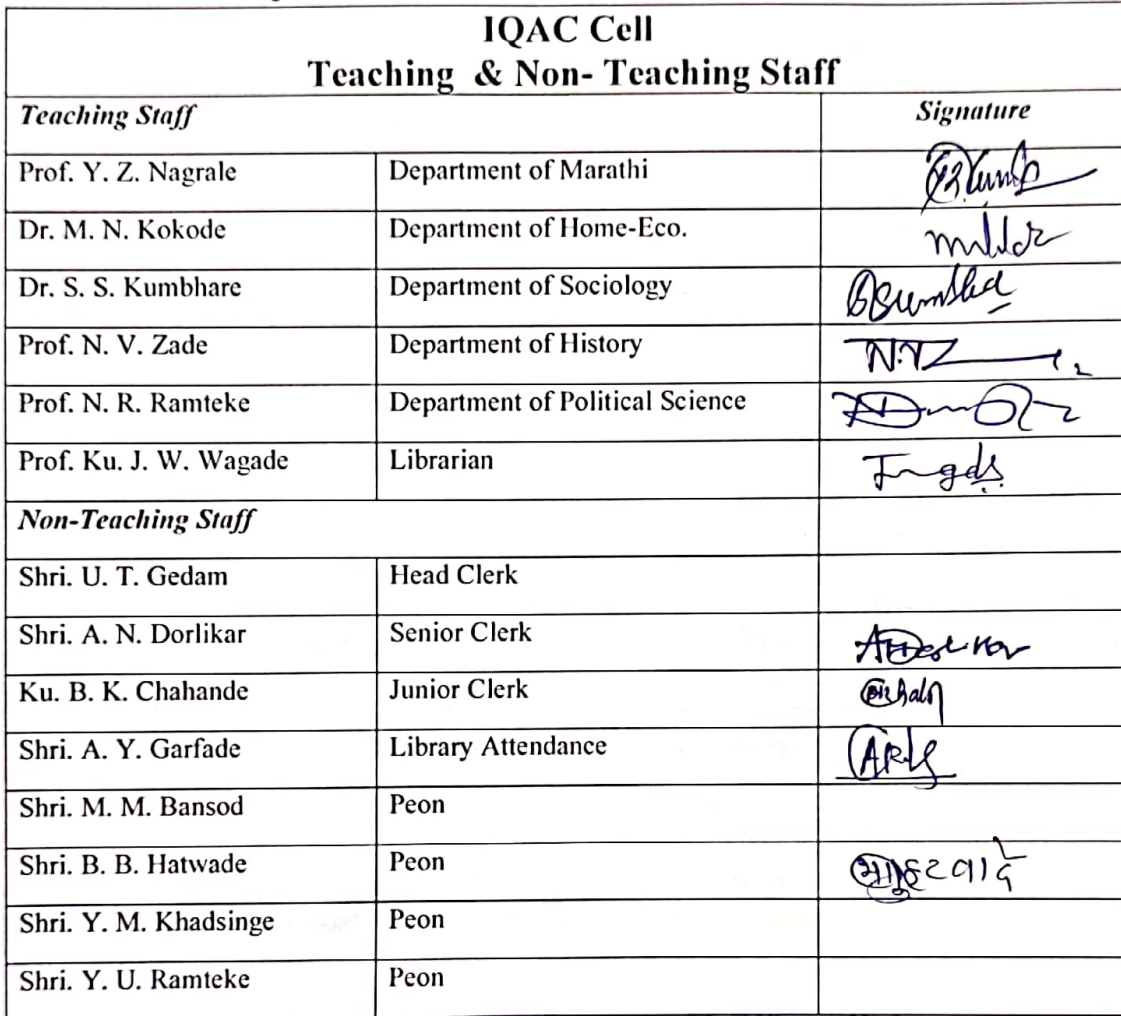 IQAC Cell
Teaching & Non- Teaching Staff
Teaching Staff Signature
Prof. Y. Z. Nagrale Department of Marathi
Dr. M. N. Kokode Department of Home-Eco.
Dr. S. S. Kumbhare Department of Sociology
Prof. N. V. Zade Department of History
Prof. N. R. Ramteke Department of Political Science
Prof. Ku. J. W. Wagade Librarian
Non-Teaching Staff
Shri. U. T. Gedam Head Clerk
Shri. A. N. Dorlikar Senior Clerk
Ku. B. K. Chahande Junior Clerk
Shri. A. Y. Garfade Library Attendance
Shri. M. M. Bansod Peon
Shri. B. B. Hatwade Peon
Shri. Y. M. Khadsinge Peon
Shri. Y. U. Ramteke Peon